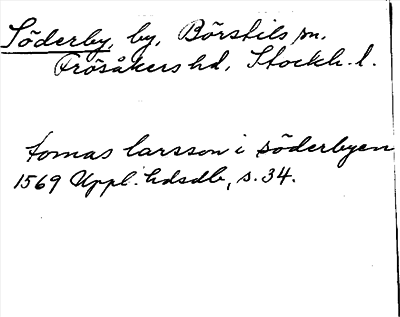 Söderby, by, Börstils sn.
Frösåkers hd, Stockh. l.
tomas larsson i söderbyen
1569 Uppl. hdsdb, s. 34.